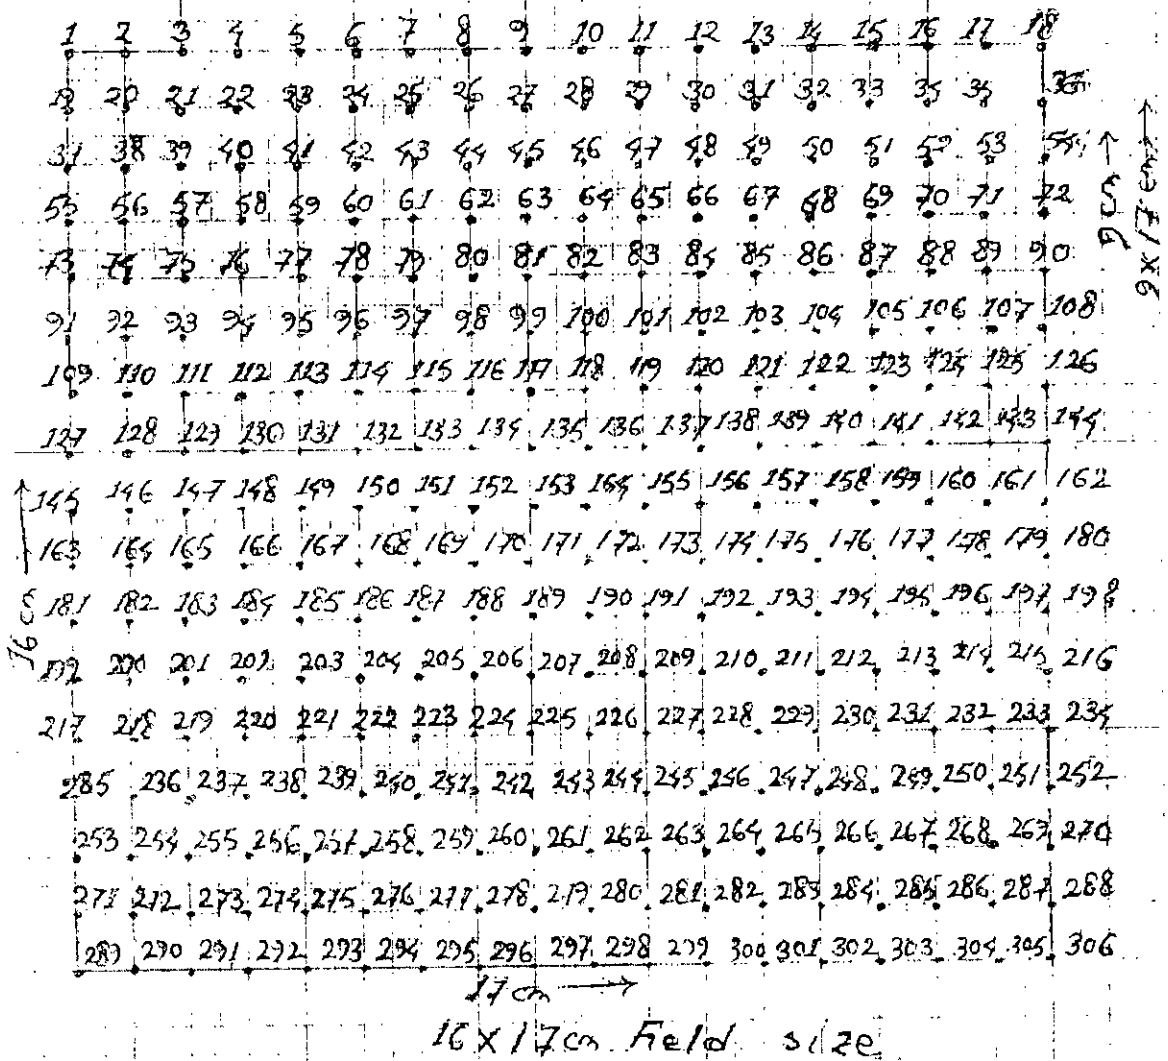 1 2 3 4 5 6 7 8 9 10 11 12 13 14 15 16 17 18
19 20 21 22 23 24 25 26 27 28 29 30 31 32 33 34 35 36
37 38 39 40 41 42 43 44 45 46 47 48 49 50 51 52 53 54
55 56 57 58 59 60 61 62 63 64 65 66 67 68 69 70 71 72
73 74 75 76 77 78 79 80 81 82 83 84 85 86 87 88 89 90
91 92 93 94 95 96 97 98 99 100 101 102 103 104 105 106 107 108
109 110 111 112 113 114 115 116 117 118 119 120 121 122 123 124 125 126
127 128 129 130 131 132 133 134 135 136 137 138 139 140 141 142 143 144
145 146 147 148 149 150 151 152 153 154 155 156 157 158 159 160 161 162
163 164 165 166 167 168 169 170 171 172 173 174 175 176 177 178 179 180
181 182 183 184 185 186 187 188 189 190 191 192 193 194 195 196 197 198
199 200 201 202 203 204 205 206 207 208 209 210 211 212 213 214 215 216
217 218 219 220 221 222 223 224 225 226 227 228 229 230 231 232 233 234
235 236 237 238 239 240 241 242 243 244 245 246 247 248 249 250 251 252
253 254 255 256 257 258 259 260 261 262 263 264 265 266 267 268 269 270
271 272 273 274 275 276 277 278 279 280 281 282 283 284 285 286 287 288
289 290 291 292 293 294 295 296 297 298 299 300 301 302 303 304 305 306
9×17 cm →
17 cm →
16 × 17 cm Field size